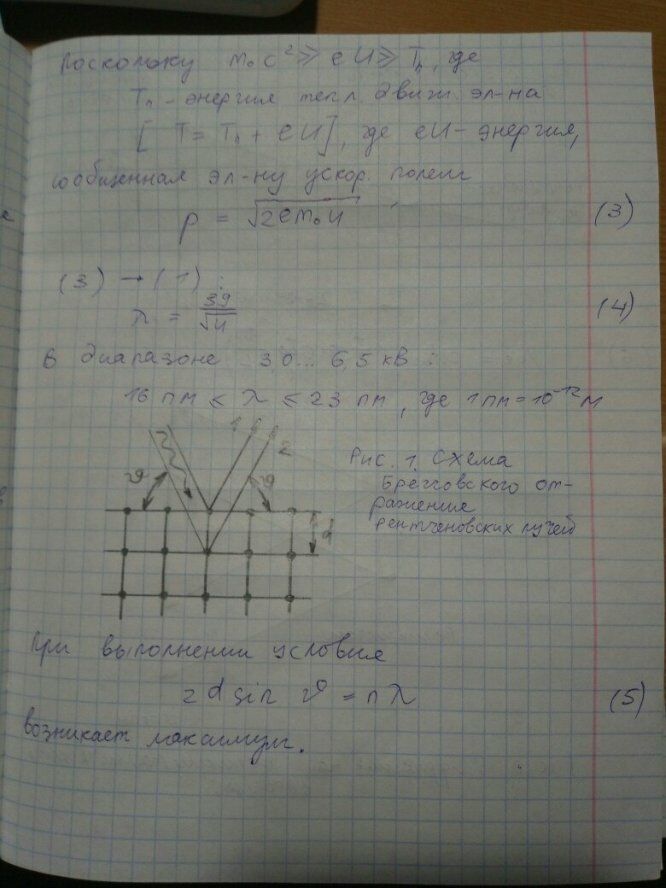 Поскольку m₀c² ≫ eU ≫ Tₙ, где
Tₙ - энергия тепл движ эл-на
[ T = Tₙ + eU ], где eU - энергия,
сообщенная эл-ну ускор. полем
p = √2em₀U (3)
(3) → (1) :
λ = 39/√U (4)
В диапазоне 3,0... 6,5 кВ :
16 пм ≤ λ ≤ 23 пм, где 1пм = 10⁻¹² м
1 2
ϑ ϑ
d
Рис. 1. Схема
Брегговского от-
ражение
рентгеновских лучей
При выполнении условия
2d sin ϑ = nλ (5)
возникает максимум.